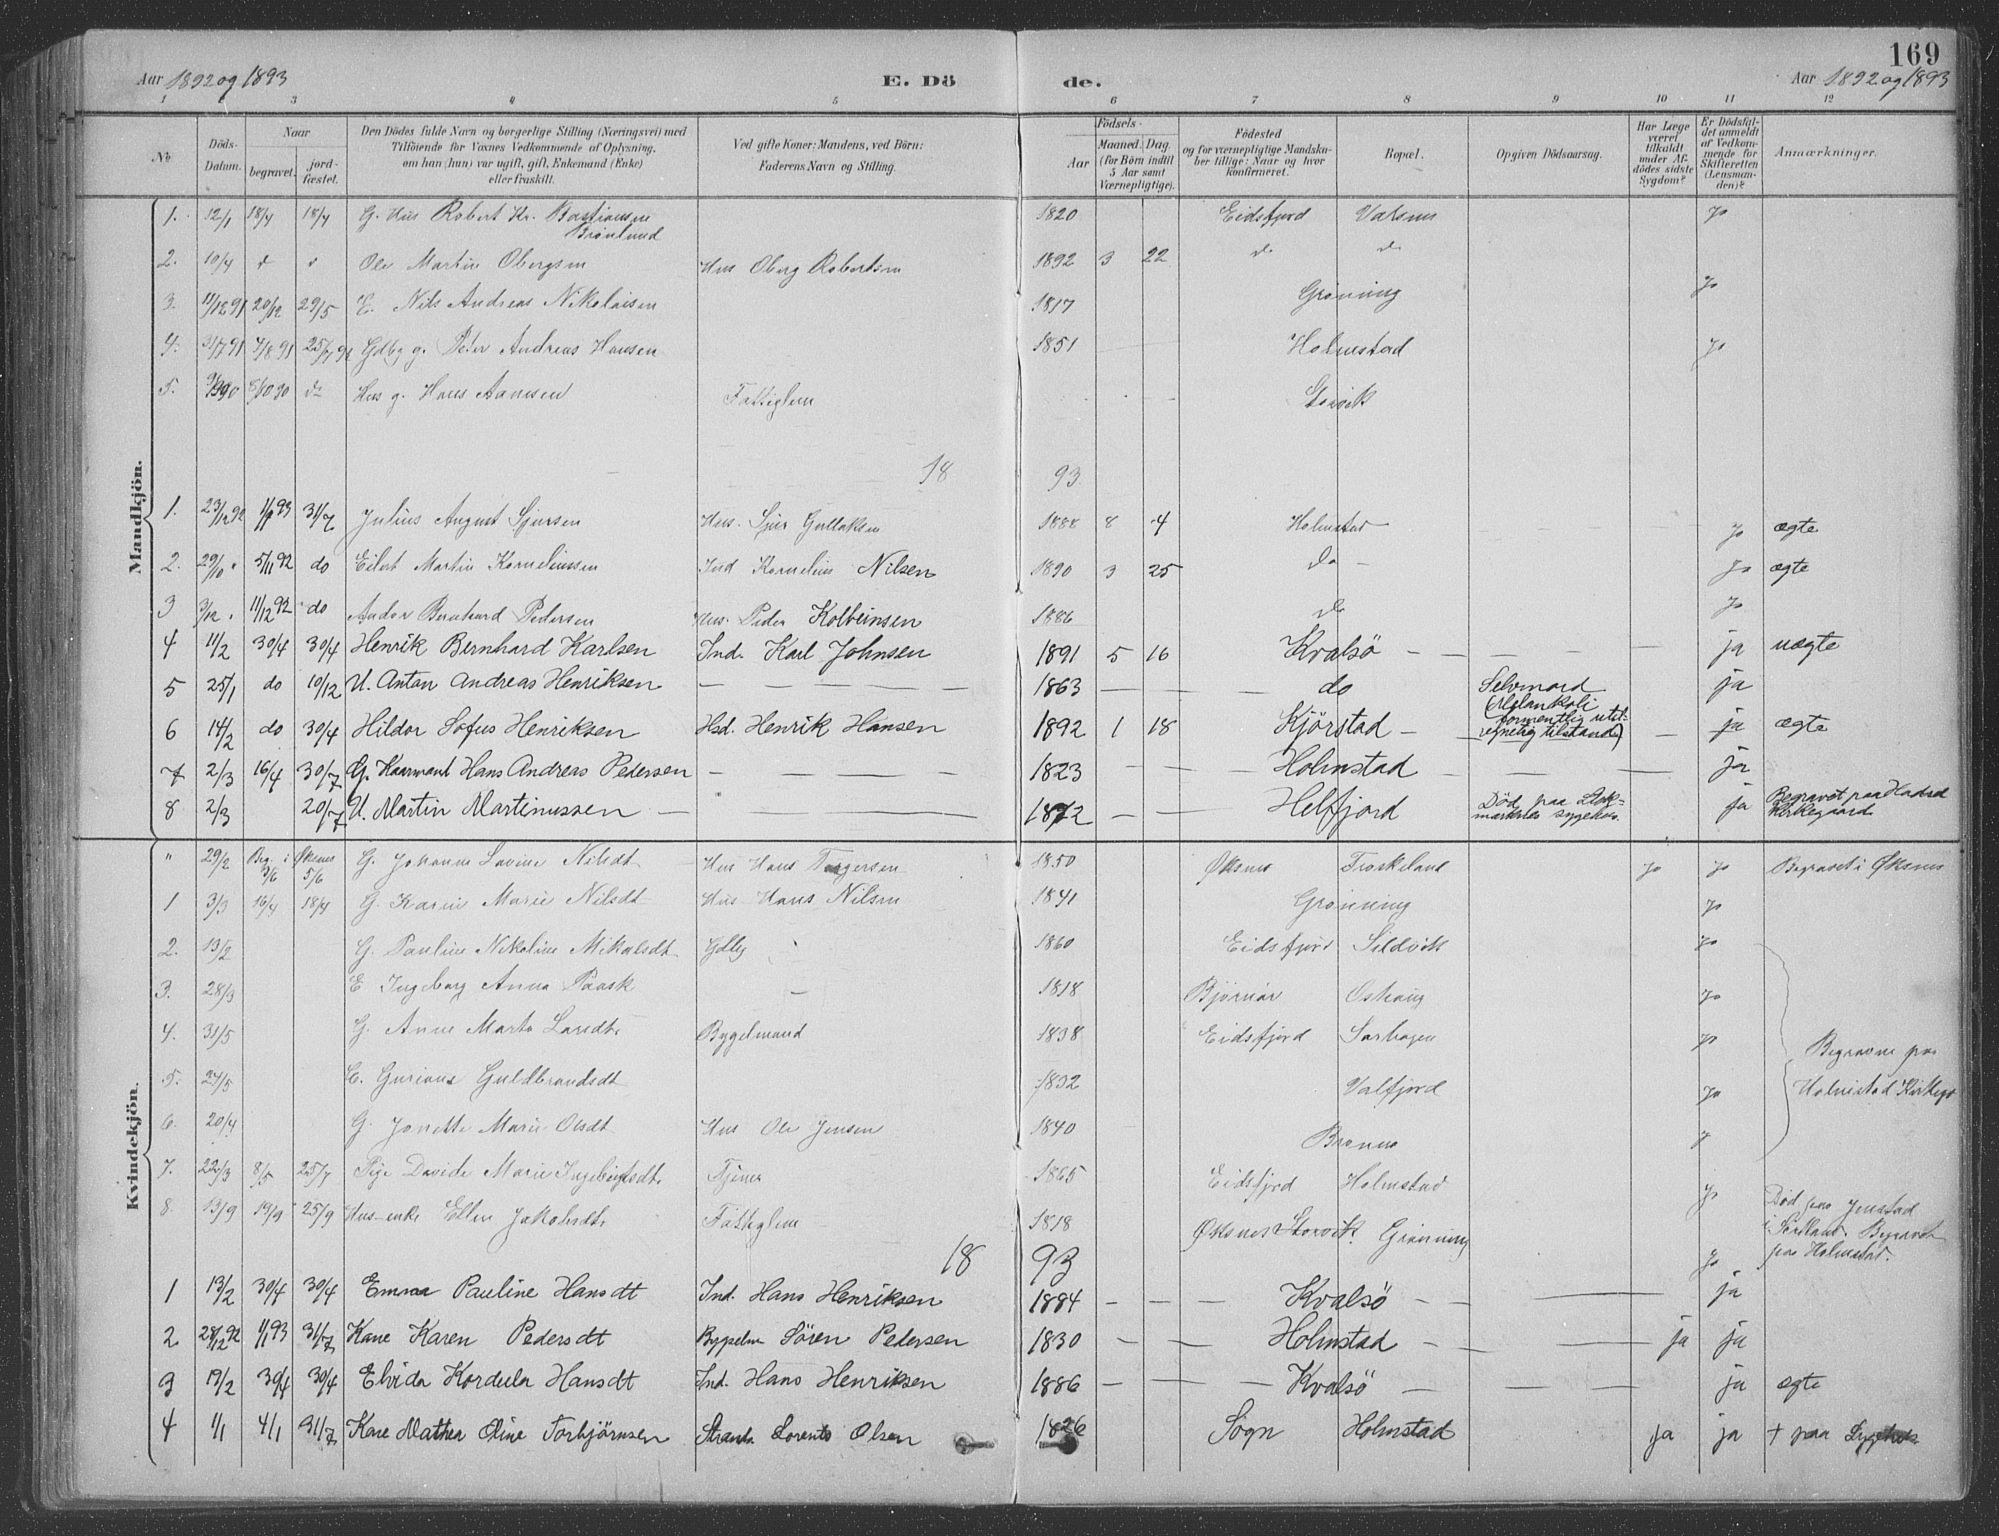 169
Aar 1892 og 1893 E. Döde. Aar 1892 og 1893
1 3 4 5 6 7 8 9 10 11 12
No
Döds-Datum.
Naar
begravet.
jordfæstet.
Den Dödes fulde Navn og borgerlige Stilling (Næringsvei) med
Tilföiende for Voxnes Vedkommende af Oplysning,
om han (hun) var ugift, gift, Enkemand (Enke)
eller fraskilt.
Ved gifte Koner: Mandens, ved Börn:
Faderens Navn og Stilling.
Födsels-
Aar
Maaned. Dag.
(for Börn indtil
5 Aar samt
Værnepligtige).
Födested
og for værnepligtige Mandskaber tillige: Naar og hvor
konfirmeret.
Bopæl.
Opgiven Dödsaarsag.
Har Læge
været
tilkaldt
under Afdödes sidste
Sygdom?
Er Dödsfaldet anmeldt
af Vedkommende for
Skifteretten
(Lensmanden)?
Anmærkninger.
Mandkjön.
1. 12/1 18/4 18/4 G. Hus Robert Kr. Bastiansen 1820 Eidsfjord Valsnes Jo
Brönlund
2. 10/4 Ole Martin Obergsen Hus Oberg Robertsen 1892 3 22 do do
3. 20/12 29/5 E. Nils Andreas Nikolaisen 1817 Gröning Jo
4. 4/8 91 Gdbg g. Peder Andreas Hansen 1851 Holmstad Jo
5. do Hus g. Hans Fattiglem Storvik
18 93
1. 23/12 92 1/1 93 31/7 Julius August Sjursen Hus. Sjur Gullaksen 1888 8 4 Holmstad Jo ægte
2. 29/10 5/11 92 do Eilert Martin Korneliussen Ind Kornelius Nilsen 1890 3 25 do Jo ægte
3 3/12 11/12 92 do Andor Bernhard Pedersen Hus. Peder Kolbeinsen 1886 do Jo
4 11/2 30/4 30/4 Henrik Bernhard Karlsen Ind. Karl Johnsen 1891 5 16 Kvalsö ja uægte
5 25/1 do 10/12 U. Anton Andreas Henriksen 1863 do Selvmord ja
(Melankoli
formentlig util-
regnelig tilstand)
6 14/2 do 30/4 Hildor Sofus Henriksen Hsd. Henrik Hansen 1892 1 18 Kjörstad ja ægte
7 2/3 16/4 30/7 G. Kaarmand Hans Andreas Pedersen 1823 Holmstad ja
8 2/3 20/7 U. Martin Martinussen 1872 Helfjord Död paa Stok- ja Begravet paa Hadsel
marknes sygehus. Kirkegaard
Kvindekjön.
" 29/2 Beg. i Öksnes G. Johanna Lovise Nilsdt Hus Hans Torgersen 1850 Öksnes Froskeland Jo Jo Begravet i Öksnes
5/6
1 3/3 16/4 18/4 G. Karen Marie Nilsdt Hus Hans Nilsen 1841 Gröning Jo
2. 13/2 G. Pauline Nikoline Mikalsdt Gdbg 1860 Eidsfjord Sildvik Jo
3. 28/3 E Ingeborg Anna Paask 1818 Björnör Jo
4. 31/5 G. Anne Marta Bygselmand 1838 Eidsfjord Jo
5. 24/5 E. Guriana Guldbrandsdt 1832 Valfjord Jo
Begravne paa
Holmstad Kirkeg.
6. 20/4 G. Jonette Marie Olsdt Hus Ole Jensen 1840 J
7. 22/3 8/5 25/7 Pige Davide Marie Ingebrigtsdt. Tjener 1865 Eidsfjord Holmstad Jo
8. 13/9 19/9 25/9 Hus-enke Ellen Jakobsdt. Fattiglem 1818 Öksnes Storvik. Gröning Jo
Död paa Jenstad
i Sortland. Begravet
paa Holmstad.
18 93
1 13/2 30/4 30/4 Emma Pauline Hansdt Ind. Hans Henriksen 1884 Kvalsö ja
2 28/12 92 1/1 93 31/7 Kone Karen Pedersdt Bygselm Sören Pedersen 1830 Holmstad ja ja
3 19/2 30/4 30/4 Elvida Kordula Hansdt Ind. Hans Henriksen 1886 Kvalsö ja ægte
4 1/1 4/1 31/7 Kone Mathea Oline Torbjörnsen Strands. Lorents Olsen 1826 Sogn Holmstad ja ja † paa Sygehus